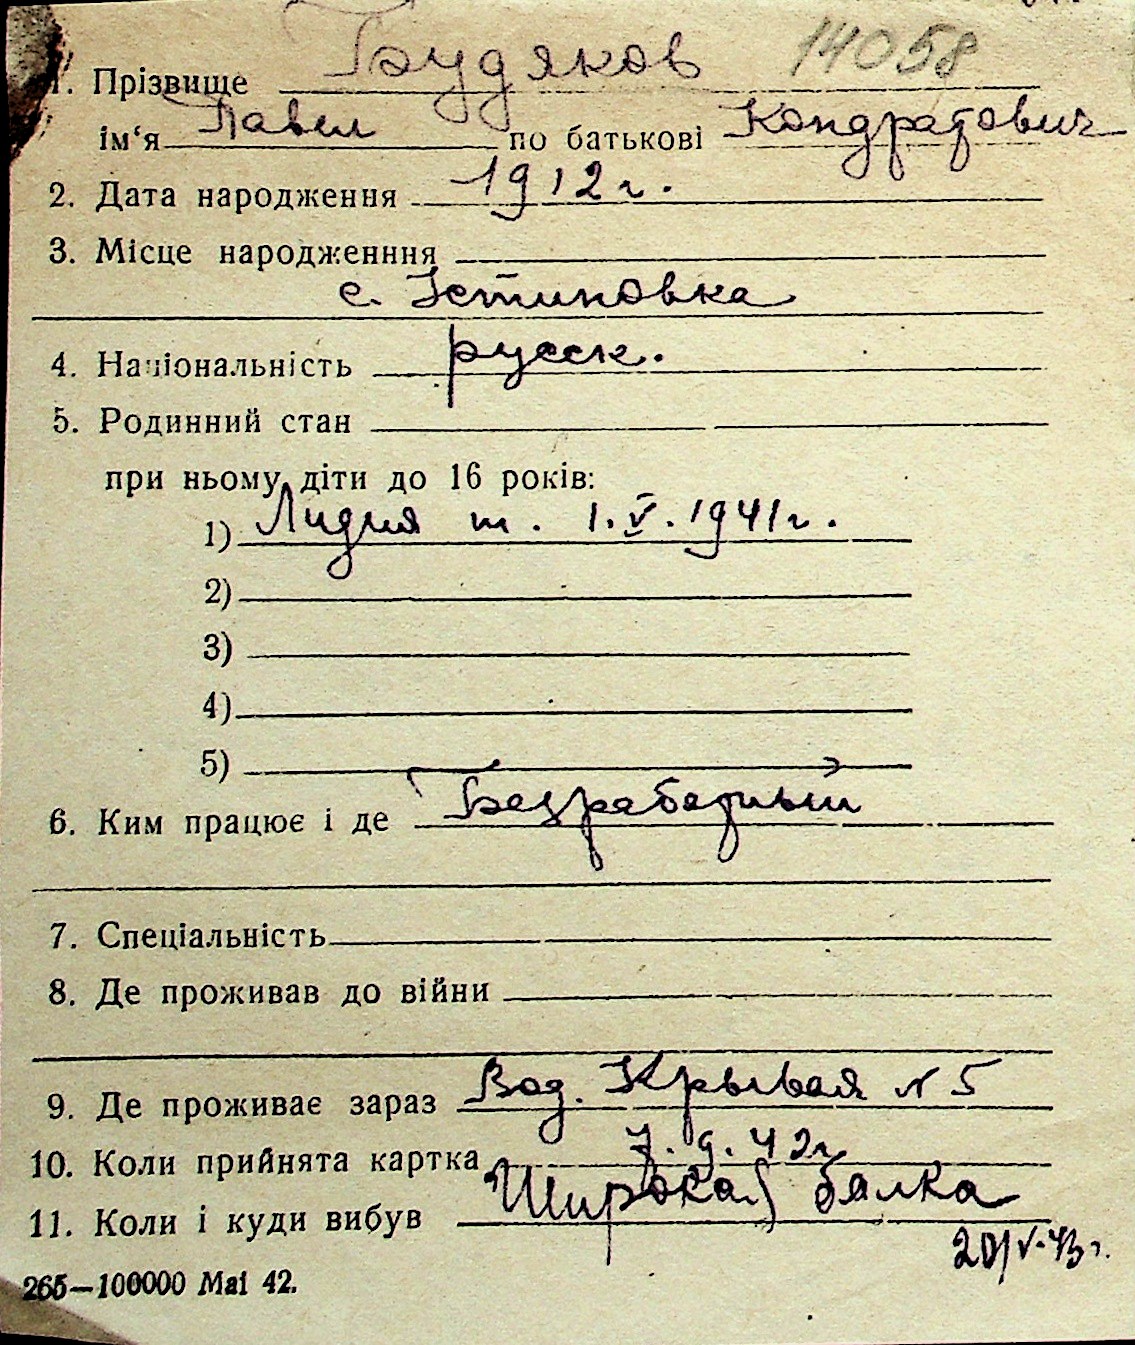 14058
1. Прізвище Будяков
ім‘я Павел по батькові Кондратович
2. Дата народження 1912 г.
3. Місце народженння
с. Устиновка
4. Національність русск.
5. Родинний стан
при ньому діти до 16 років:
1) Лидия 1.V.1941 г.
2)
3)
4)
5)
6. Ким працює і де Безработный
7. Спеціальність
8. Де проживав до війни
9. Де проживає зараз Вод. Кривая N 5
10. Коли прийнята картка 7.9.42 г.
11. Коли і куди вибув Широкая балка
20/V-43 г.
265—100000 Mai 42.